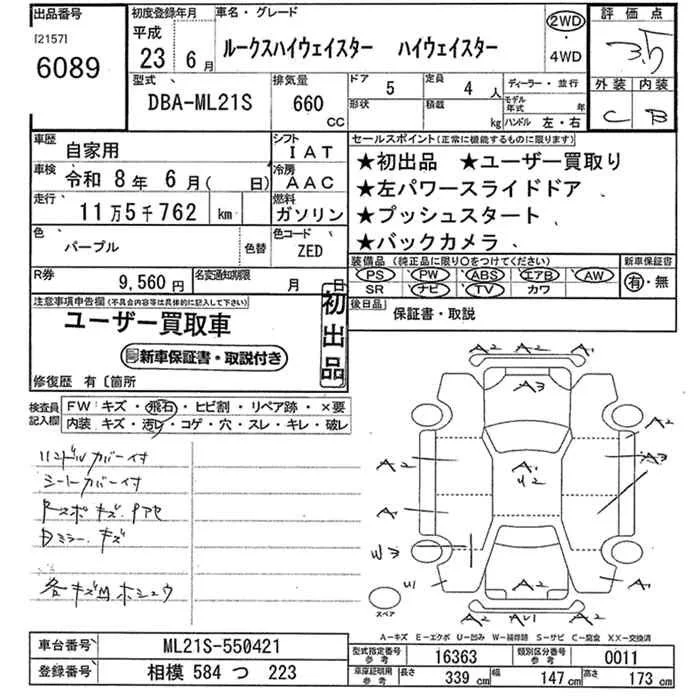 出品番号
[2157]
6089
初度登録年月
平成
23 6月
車名・グレード
ルークスハイウェイスター ハイウェイスター
2WD
・
4WD
評価点
3.5
外装 内装
C B
型式
DBA-ML21S
排気量
660
CC
ドア 5
定員 4人
形状
積載 kg
ディーラー・並行
モデル年式 年
ハンドル 左・右
車歴
自家用
シフト
IAT
車検 令和 8年 6月( 日)
冷房
AAC
走行
11万5千762 km
燃料
ガソリン
色
パープル
色替
色コード
ZED
R券
9,560円
名変通知期限
月 日
セールスポイント(正常に機能するものに限ります)
★初出品 ★ユーザー買取り
★左パワースライドドア
★プッシュスタート
★バックカメラ
装備品 (純正品に限り○をつけてください)
PS PW ABS エアB AW
SR ナビ TV カワ
新車保証書
有・無
後日品
保証書・取説
注意事項申告欄(不具合内容等は具体的に記入して下さい)
ユーザー買取車
新車保証書・取説付き
初出品
修復歴 有〔箇所
検査員
記入欄
FW キズ・飛石・ヒビ割・リペア跡・×要
内装 キズ・汚レ・コゲ・穴・スレ・キレ・破レ
ハンドルカバー付
シートカバー付
Rスポキズ.アセ
Dミラーキズ
各キズMホシュウ
A2 A2 A1
A3
A2
A1
U2
A2
A2
A3
A1
W3
U1
A2
A1
A2 AU1 A2
スペア
A−キズ E−エクボ U−凹み W−補修跡 S−サビ C−腐食 XX−交換済
車台番号
ML21S-550421
登録番号
相模 584 つ 223
型式指定番号
参考
16363
類別区分番号
参考
0011
車庫証明用
参考
長さ 339 cm
幅 147 cm
高さ 173 cm